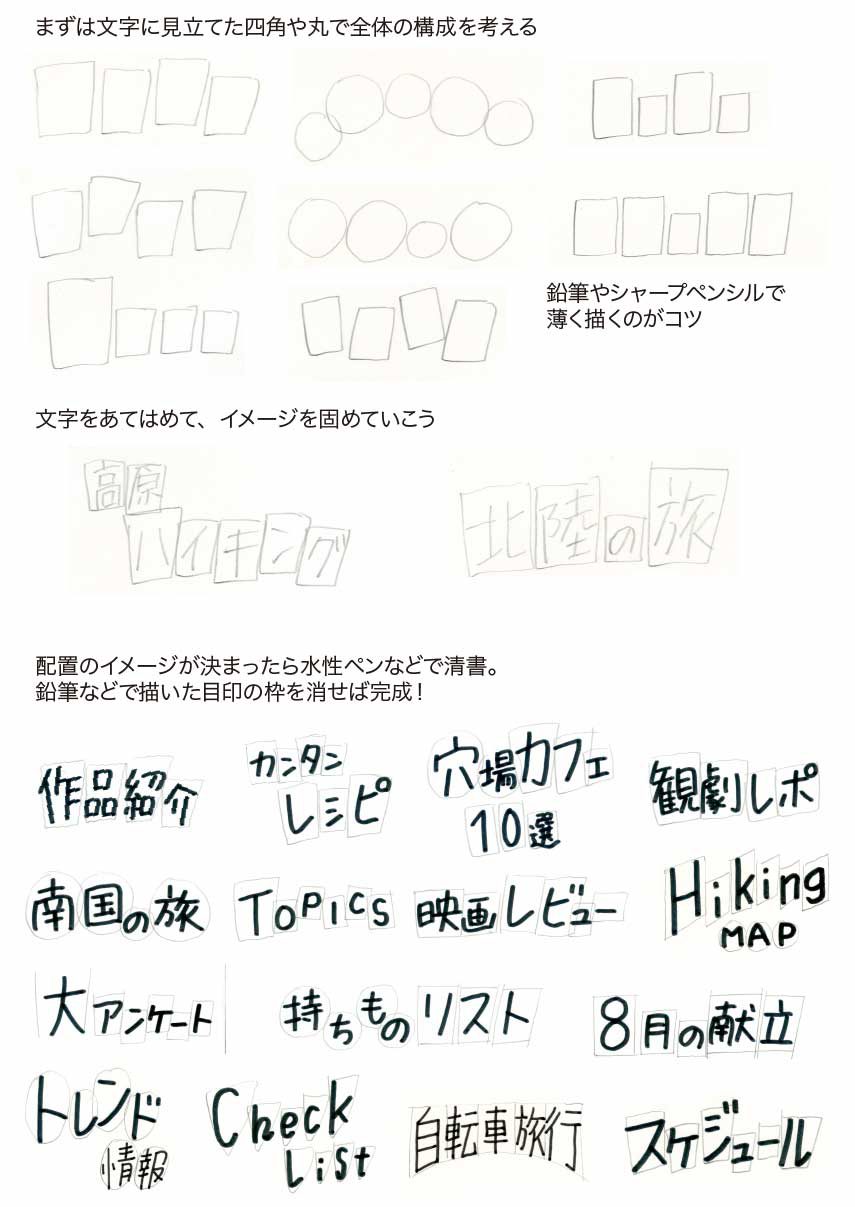 まずは文字に見立てた四角や丸で全体の構成を考える
鉛筆やシャープペンシルで
薄く描くのがコツ
文字をあてはめて、イメージを固めていこう
高原
ハイキング
北陸の旅
配置のイメージが決まったら水性ペンなどで清書。
鉛筆などで描いた目印の枠を消せば完成!
作品紹介
カンタン
レシピ
穴場カフェ
10選
観劇レポ
南国の旅
TOPICS
映画レビュー
Hiking
MAP
大アンケート
持ちものリスト
8月の献立
トレンド
情報
Check
LiSt
自転車旅行
スケジュール